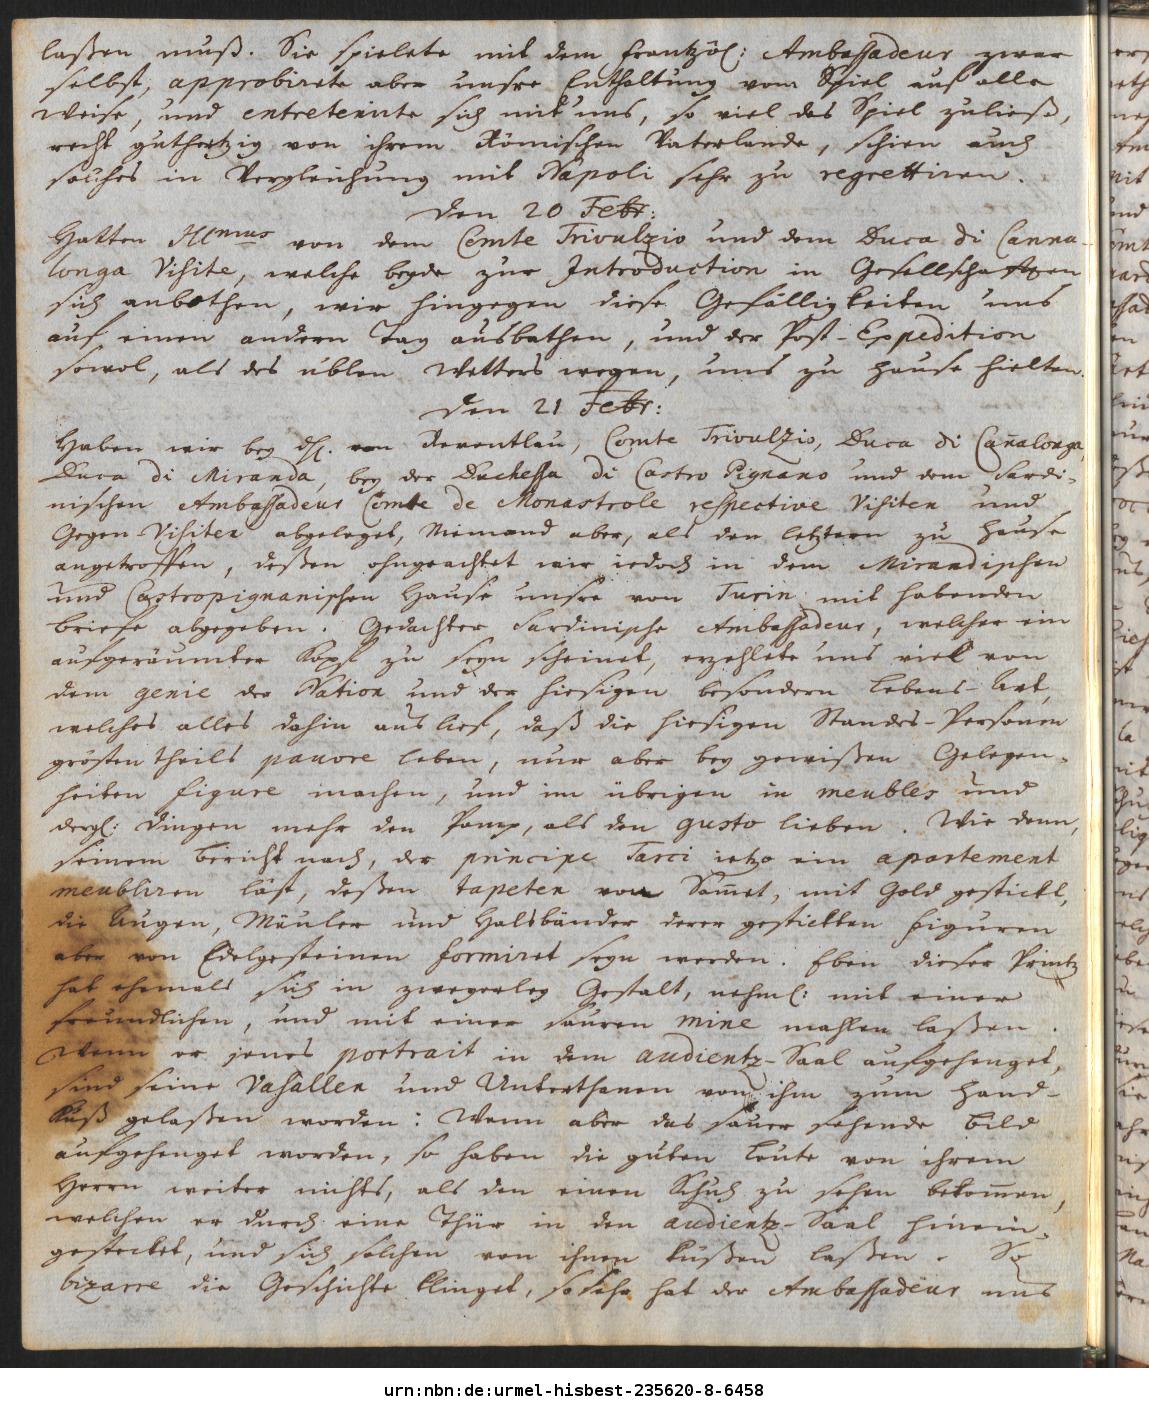 laßen muß. Sie spielete mit dem frantzös: Ambassadeur zwar
selbst, approbirete aber unsre Enthaltung vom Spiel auf alle
Weise, und entretenirte sich mit uns, so viel das Spiel zuließ,
recht guthertzig von ihrem Römischen Vaterlande, schien auch
solches in Vergleichung mit Napoli sehr zu regrettiren.
Den 20 Febr:
Hatten Illmus von dem Comte Trivulzio und dem Duca di Canna-
longa Visite, welche beyde zur Introduction in Gesellschafften
sich anbothen, wir hingegen diese Gefälligkeiten uns
auf einen andern Tag ausbathen, und der Post-Expedition
sowol, als des üblen Wetters wegen, uns zu Hause hielten.
Den 21 Febr:
Haben wir bey H. von Reventlau, Comte Trivulzio, Duca di Cañalonga,
Duca di Miranda, bey der Duchessa di Castro Pignano und dem Sardi-
nischen Ambassadeur Comte de Monastrole respective Visiten und
Gegen-Visiten abgeleget, Niemand aber, als den letztern zu Hause
angetroffen, deßen ohngeachtet wir iedoch in dem Mirandischen
und Castropignanischen Hause unsre von Turin mit habenden
Briefe abgegeben. Gedachter Sardinische Ambassadeur, welcher ein
aufgeräumter Kopf zu seyn scheinet, erzehlete uns viel von
dem genie der Nation und der hiesigen besondern Lebens-Art,
welches alles dahin aus lief, daß die hiesigen Standes-Personen
grösten theils pauvre leben, nur aber bey gewißen Gelegen-
heiten figure machen, und im übrigen in meubles und
dergl: Dingen mehr den Pomp, als den gusto lieben. Wie denn,
seinem Bericht nach, der principe Tarci ietzo ein apartement
meubliren läst, deßen tapeten von Sam̄et, mit Gold gestickt,
die Augen, Mäuler und Halsbänder derer gestickten Figuren
aber von Edelgesteinen formiret seyn werden. Eben dieser Printz
hat ehemals sich in zweyerley Gestalt, nehml: mit einer
freundlichen, und mit einer sauren mine mahlen laßen.
Wenn er jenes portrait in dem audientz-Saal aufgehenget,
sind seine Vasallen und Unterthanen von ihm zum Hand-
Kuß gelaßen worden: Wenn aber das sauer sehende Bild
aufgehenget worden, so haben die guten Leute von ihrem
Herrn weiter nichts, als den einen Schuh zu sehen bekom̄en,
welchen er durch eine Thür in den audientz-Saal hinein-
gestecket, und sich solchen von ihnen küßen laßen. So
bizarre die Geschichte klinget, so sehr hat der Ambassadeur uns
urn:nbn:de:urmel-hisbest-235620-8-6458